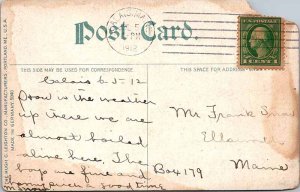 Post Card.
CALAIS
5 PM
1912
THIS SIDE MAY BE USED FOR CORRESPONDENCE
THIS SPACE FOR ADDRESS
U.S. POSTAGE
1 CENT 1
THE HUGH C. LEIGHTON CO., MANUFACTURERS, PORTLAND, ME., U.S.A.
MADE IN GERMANY
Calais 6-5-12
is the weather
up there we are
almost boiled
alive here. The
boys are fine and
a good time
Mr Frank
Maine
Box 179